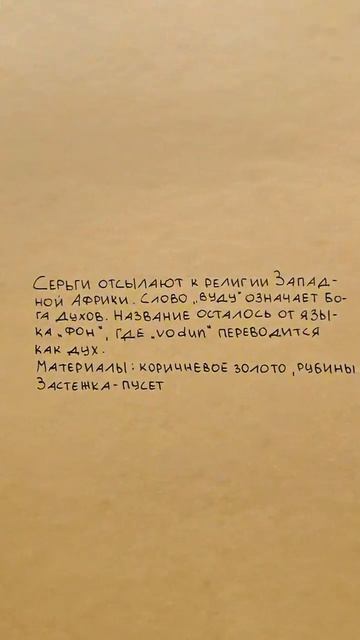 Серьги отсылают к религии Запад-
ной Африки. Слово „вуду" означает Бо-
га духов. Название осталось от язы-
ка „Фон", где „vodun" переводится
как дух.
Материалы: коричневое золото, рубины
Застежка - пусет